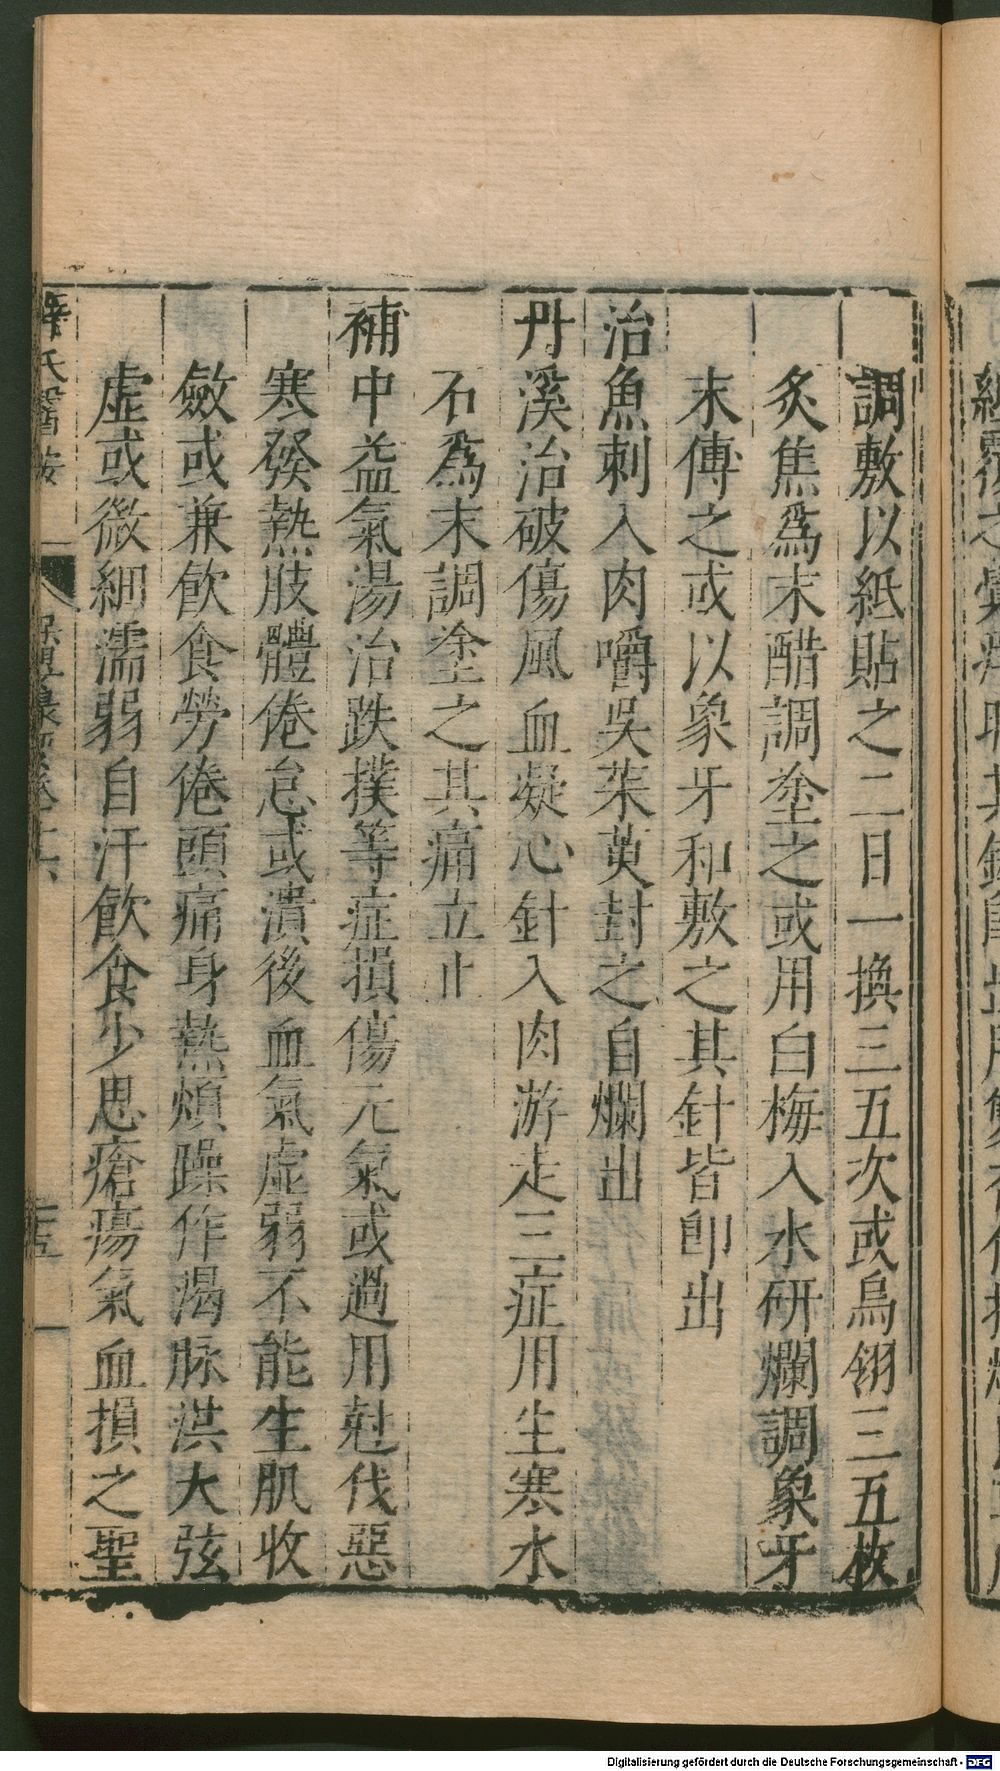 調敷以紙貼之二日一換三五次或烏翎三五枚
炙焦爲末醋調塗之或用白梅入水研爛調象牙
末傅之或以象牙和敷之其針皆卽出
治魚刺入肉嚼吳茱萸封之自爛出
丹溪治破傷風血凝心針入肉游走三症用生寒水
石爲末調塗之其痛立止
補中益氣湯治跌撲等症損傷元氣或過用尅伐惡
寒發熱肢體倦怠或潰後血氣虛弱不能生肌收
斂或兼飮食勞倦頭痛身熱煩躁作渴脉洪大弦
虛或微細濡弱自汗飮食少思瘡瘍氣血損之聖
氏醫按
Digitalisierung gefördert durch die Deutsche Forschungsgemeinschaft - DFG